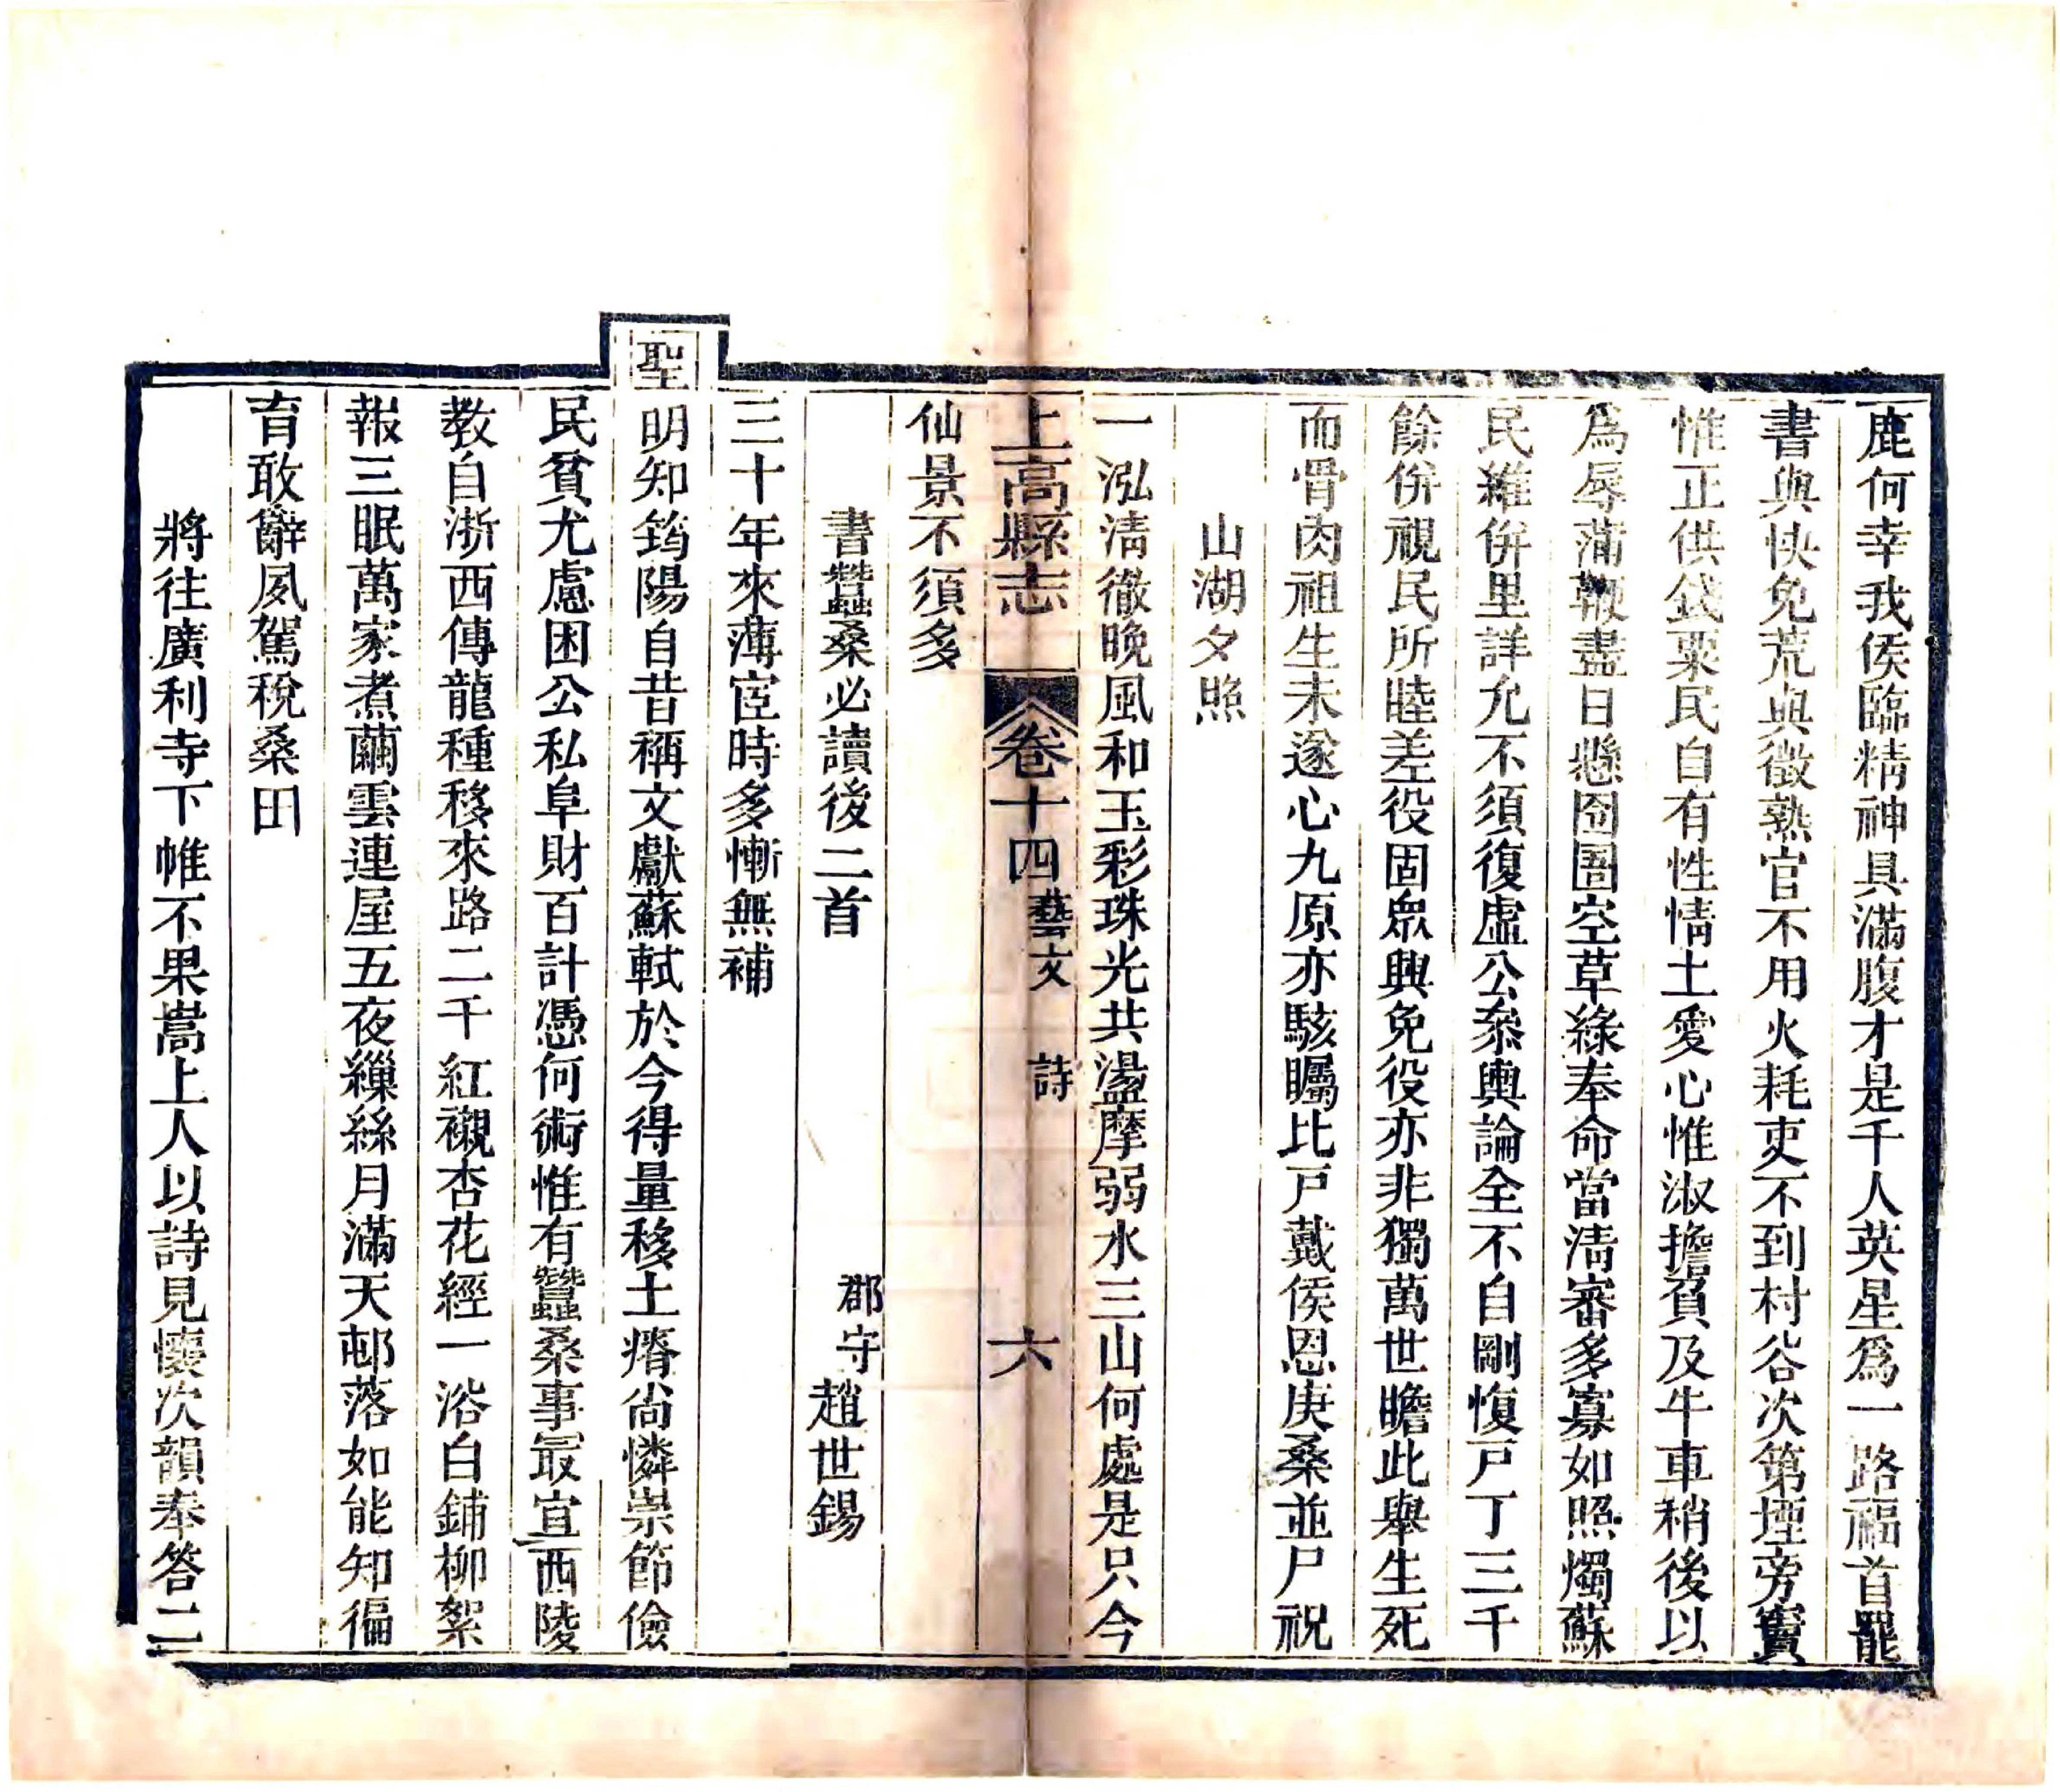 鹿何幸我侯臨精神具滿腹才是千人英星爲一路福首罷
書與快免荒與徵熟官不用火耗吏不到村谷次第堙旁竇
惟正供錢粟民自有性情土愛心惟淑擔負及牛車稍後以
爲辱蒲鞭盡日懸囹圄空草綠奉命當清審多寡如照燭蘇
民維併里詳允不須復虛公叅輿論全不自剛愎戸丁三千
餘併視民所睦差役固衆興免役亦非獨萬世瞻此舉生死
而骨肉祖生未遂心九原亦駭矚比戸戴侯恩庚桑並尸祝
山湖夕照
一泓清徹晚風和玉彩珠光共盪摩弱水三山何處是只今
上高縣志
卷十四藝文 詩 六
仙景不須多
書蠶桑必讀後二首 郡守趙世錫
三十年來薄宦時多慚無補
聖明知筠陽自昔稱文獻蘇軾於今得量移土瘠尚憐崇節儉
民貧尤慮困公私阜財百計憑何術惟有蠶桑事最宜西陵
教自浙西傳龍種移來路二千紅襯杏花經一浴白鋪柳絮
報三眠萬家煮繭雲連屋五夜繅絲月滿天邨落如能知徧
育敢辭夙駕稅桑田
將往廣利寺下帷不果嵩上人以詩見懷次韻奉答二